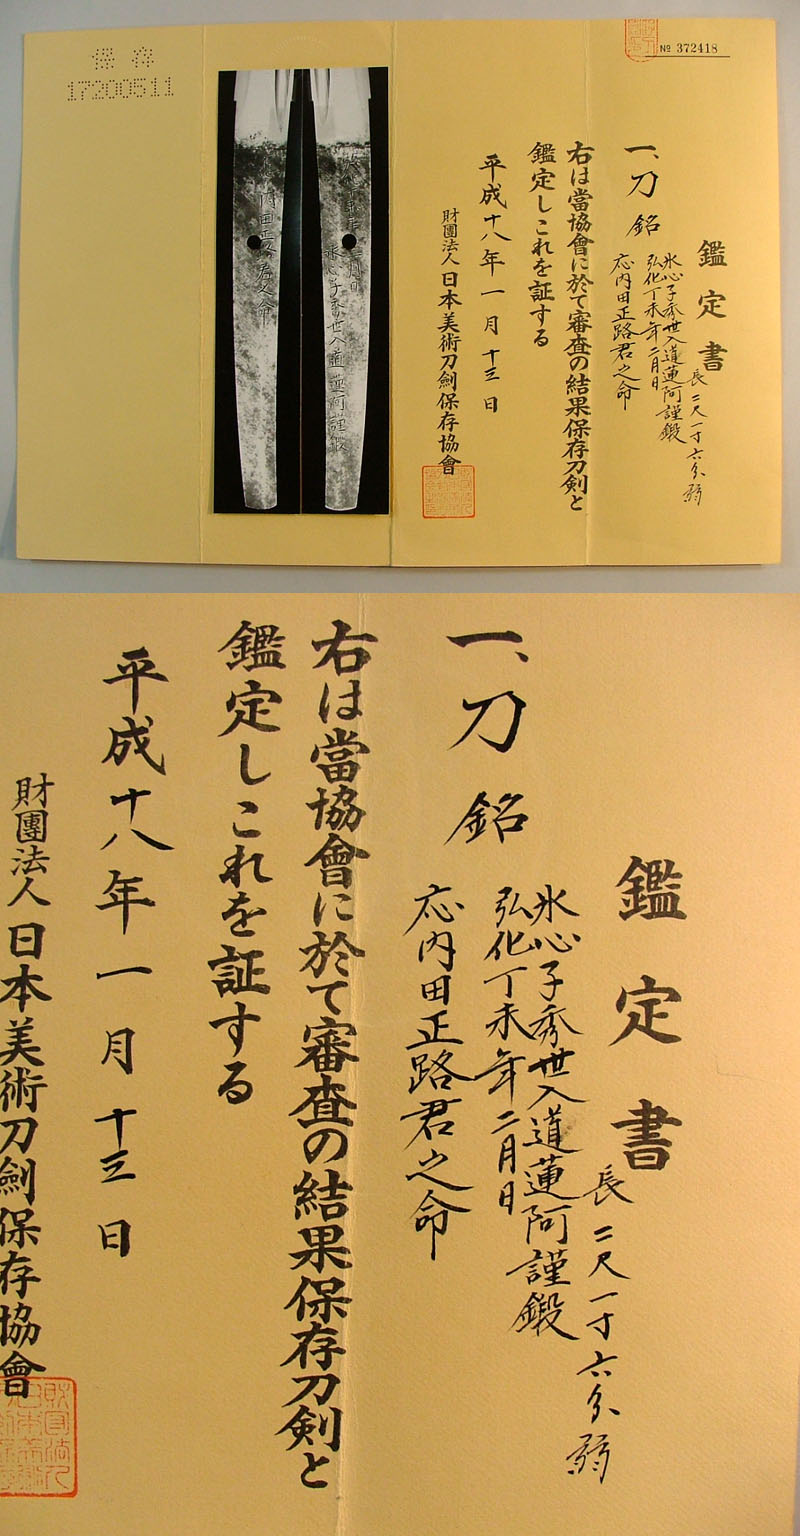 保存
17200511
№ 372418
鑑定書
一、刀 銘
長二尺一寸六分弱
氷心子秀世入道蓮阿謹鍛
弘化丁未年二月日
応内田正路君之命
右は當協會に於て審査の結果保存刀剣と
鑑定しこれを証する
平成十八年一月十三日
財團法人日本美術刀劍保存協會
二月日
氷心子秀世入道蓮阿謹鍛
内田正路君之命
鑑定書
長二尺一寸六分弱
一、刀 銘
氷心子秀世入道蓮阿謹鍛
弘化丁未年二月日
応内田正路君之命
右は當協會に於て審査の結果保存刀剣と
鑑定しこれを証する
平成十八年一月十三日
財團法人日本美術刀劍保存協會